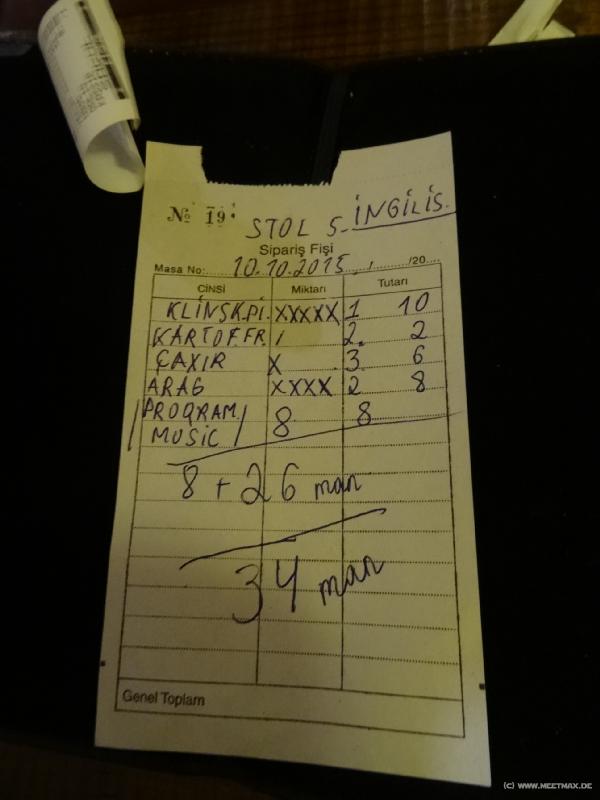 № 19
STOL 5. İNGİLİS.
Sipariş Fişi
Masa No: 10.10.2015 ..../......../20....
CİNSİ Miktarı Tutarı
KLİNSK.Pİ. XXXXX 1 10
KARTOF FR. / 2. 2
ÇAXIR X 3. 6
ARAG XXXX 2 8
/PROGRAM/ 8 8
/MUSİC/
8 + 26 man
34 man
Genel Toplam
(C) WWW.MEETMAX.DE